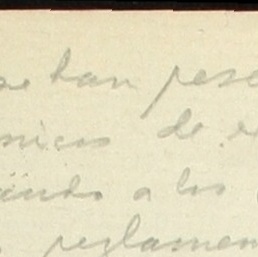 se han pese
nicos de e
iendo a los
reglamen